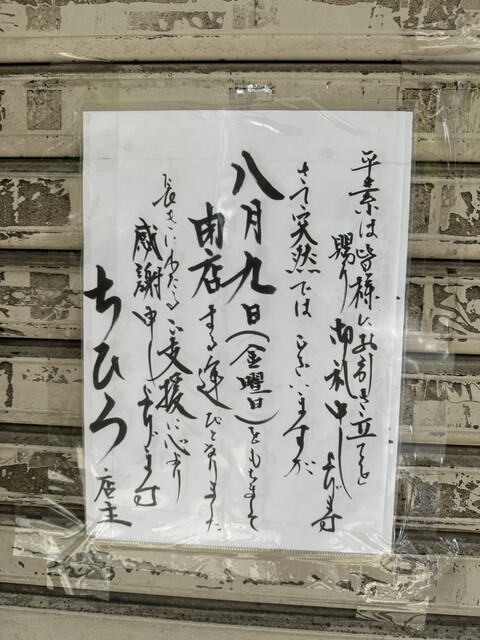 平素は皆様にお引き立てを
賜り御礼申し上げます
さて突然ではございますが
八月九日(金曜日)をもちまして
閉店する運びとなりました
長きにわたるご支援に心より
感謝申し上げます
ちひろ 店主